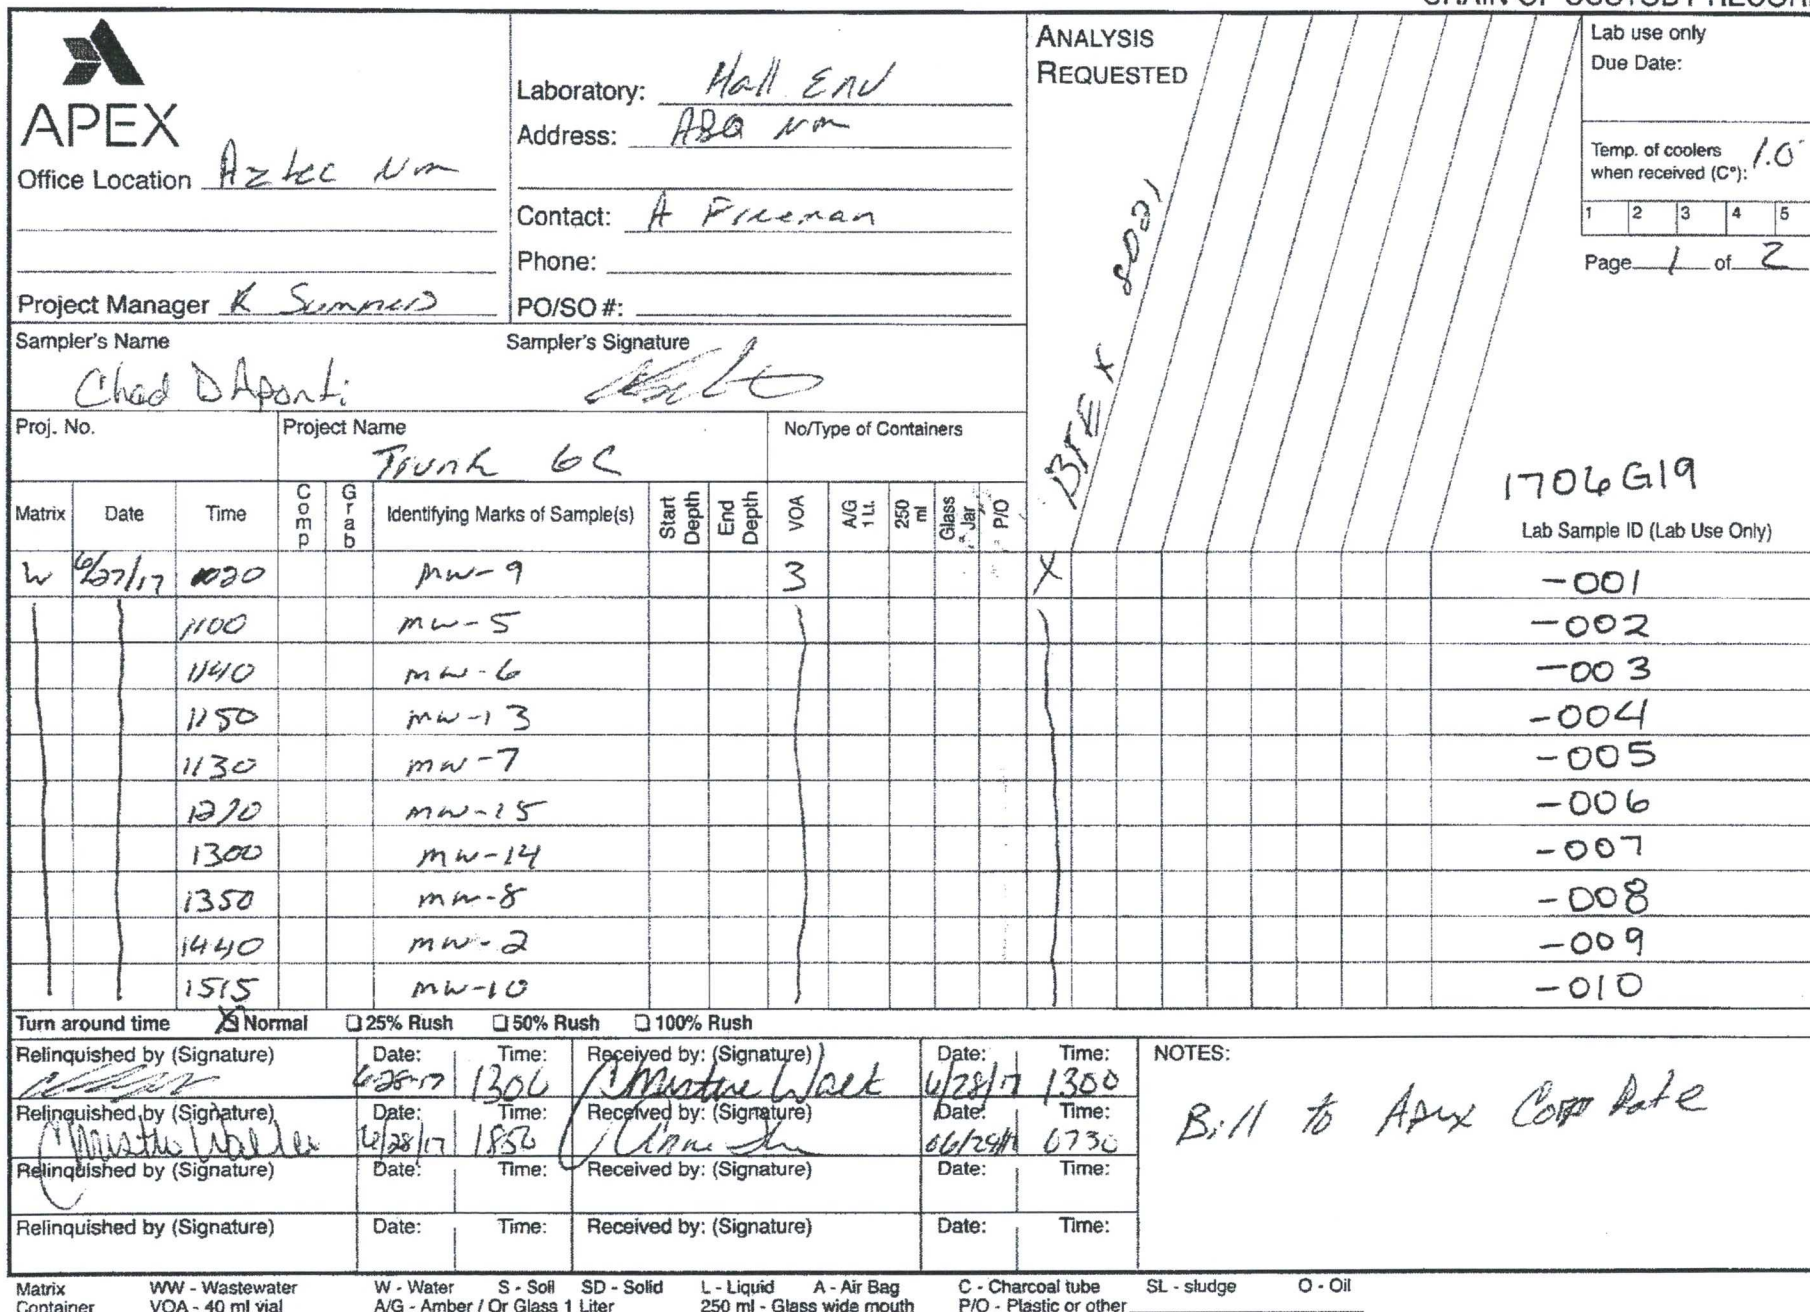 CHAIN OF CUSTODY RECORD
APEX
Office Location Aztec NM
Project Manager K Summers
Laboratory: Hall Env
Address: ABQ NM
Contact: A Freeman
Phone:
PO/SO #:
ANALYSIS
REQUESTED
BTEX 8021
Lab use only
Due Date:
Temp. of coolers
when received (C°): 1.0
1 2 3 4 5
Page 1 of 2
Sampler's Name
Chad DAponti
Sampler's Signature
Proj. No.
Project Name
Trunk 6C
No/Type of Containers
1706G19
Matrix Date Time Comp Grab Identifying Marks of Sample(s) Start Depth End Depth VOA A/G 1 Lt. 250 ml Glass Jar P/O Lab Sample ID (Lab Use Only)
W 6/27/17 1020 MW-9 3 X -001
1100 MW-5 -002
1140 MW-6 -003
1150 MW-13 -004
1130 MW-7 -005
MW-15 -006
1300 MW-14 -007
1350 MW-8 -008
1440 MW-2 -009
1515 MW-10 -010
Turn around time X Normal 25% Rush 50% Rush 100% Rush
Relinquished by (Signature) Date: 6-28-17 Time: 1300 Received by: (Signature) Christine Walters Date: 6/28/17 Time: 1300
Relinquished by (Signature) Christine Walters Date: 6/28/17 Time: 1850 Received by: (Signature) Date: 06/29/17 Time: 0730
Relinquished by (Signature) Date: Time: Received by: (Signature) Date: Time:
Relinquished by (Signature) Date: Time: Received by: (Signature) Date: Time:
NOTES:
Bill to Apex Corp Rate
Matrix WW - Wastewater W - Water S - Soil SD - Solid L - Liquid A - Air Bag C - Charcoal tube SL - sludge O - Oil
Container VOA - 40 ml vial A/G - Amber / Or Glass 1 Liter 250 ml - Glass wide mouth P/O - Plastic or other